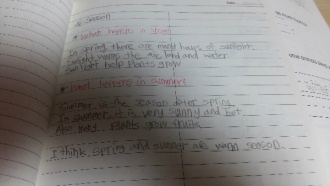 season
* What happens in spring
In spring, there are many hours of sunlight.
Sunlight warms the air, land and water.
Sunlight help plants grow
* What happens in summer
Summer is the season after spring.
In summer, it is very sunny and hot.
plants grow fruits
I think spring and summer are warm season.